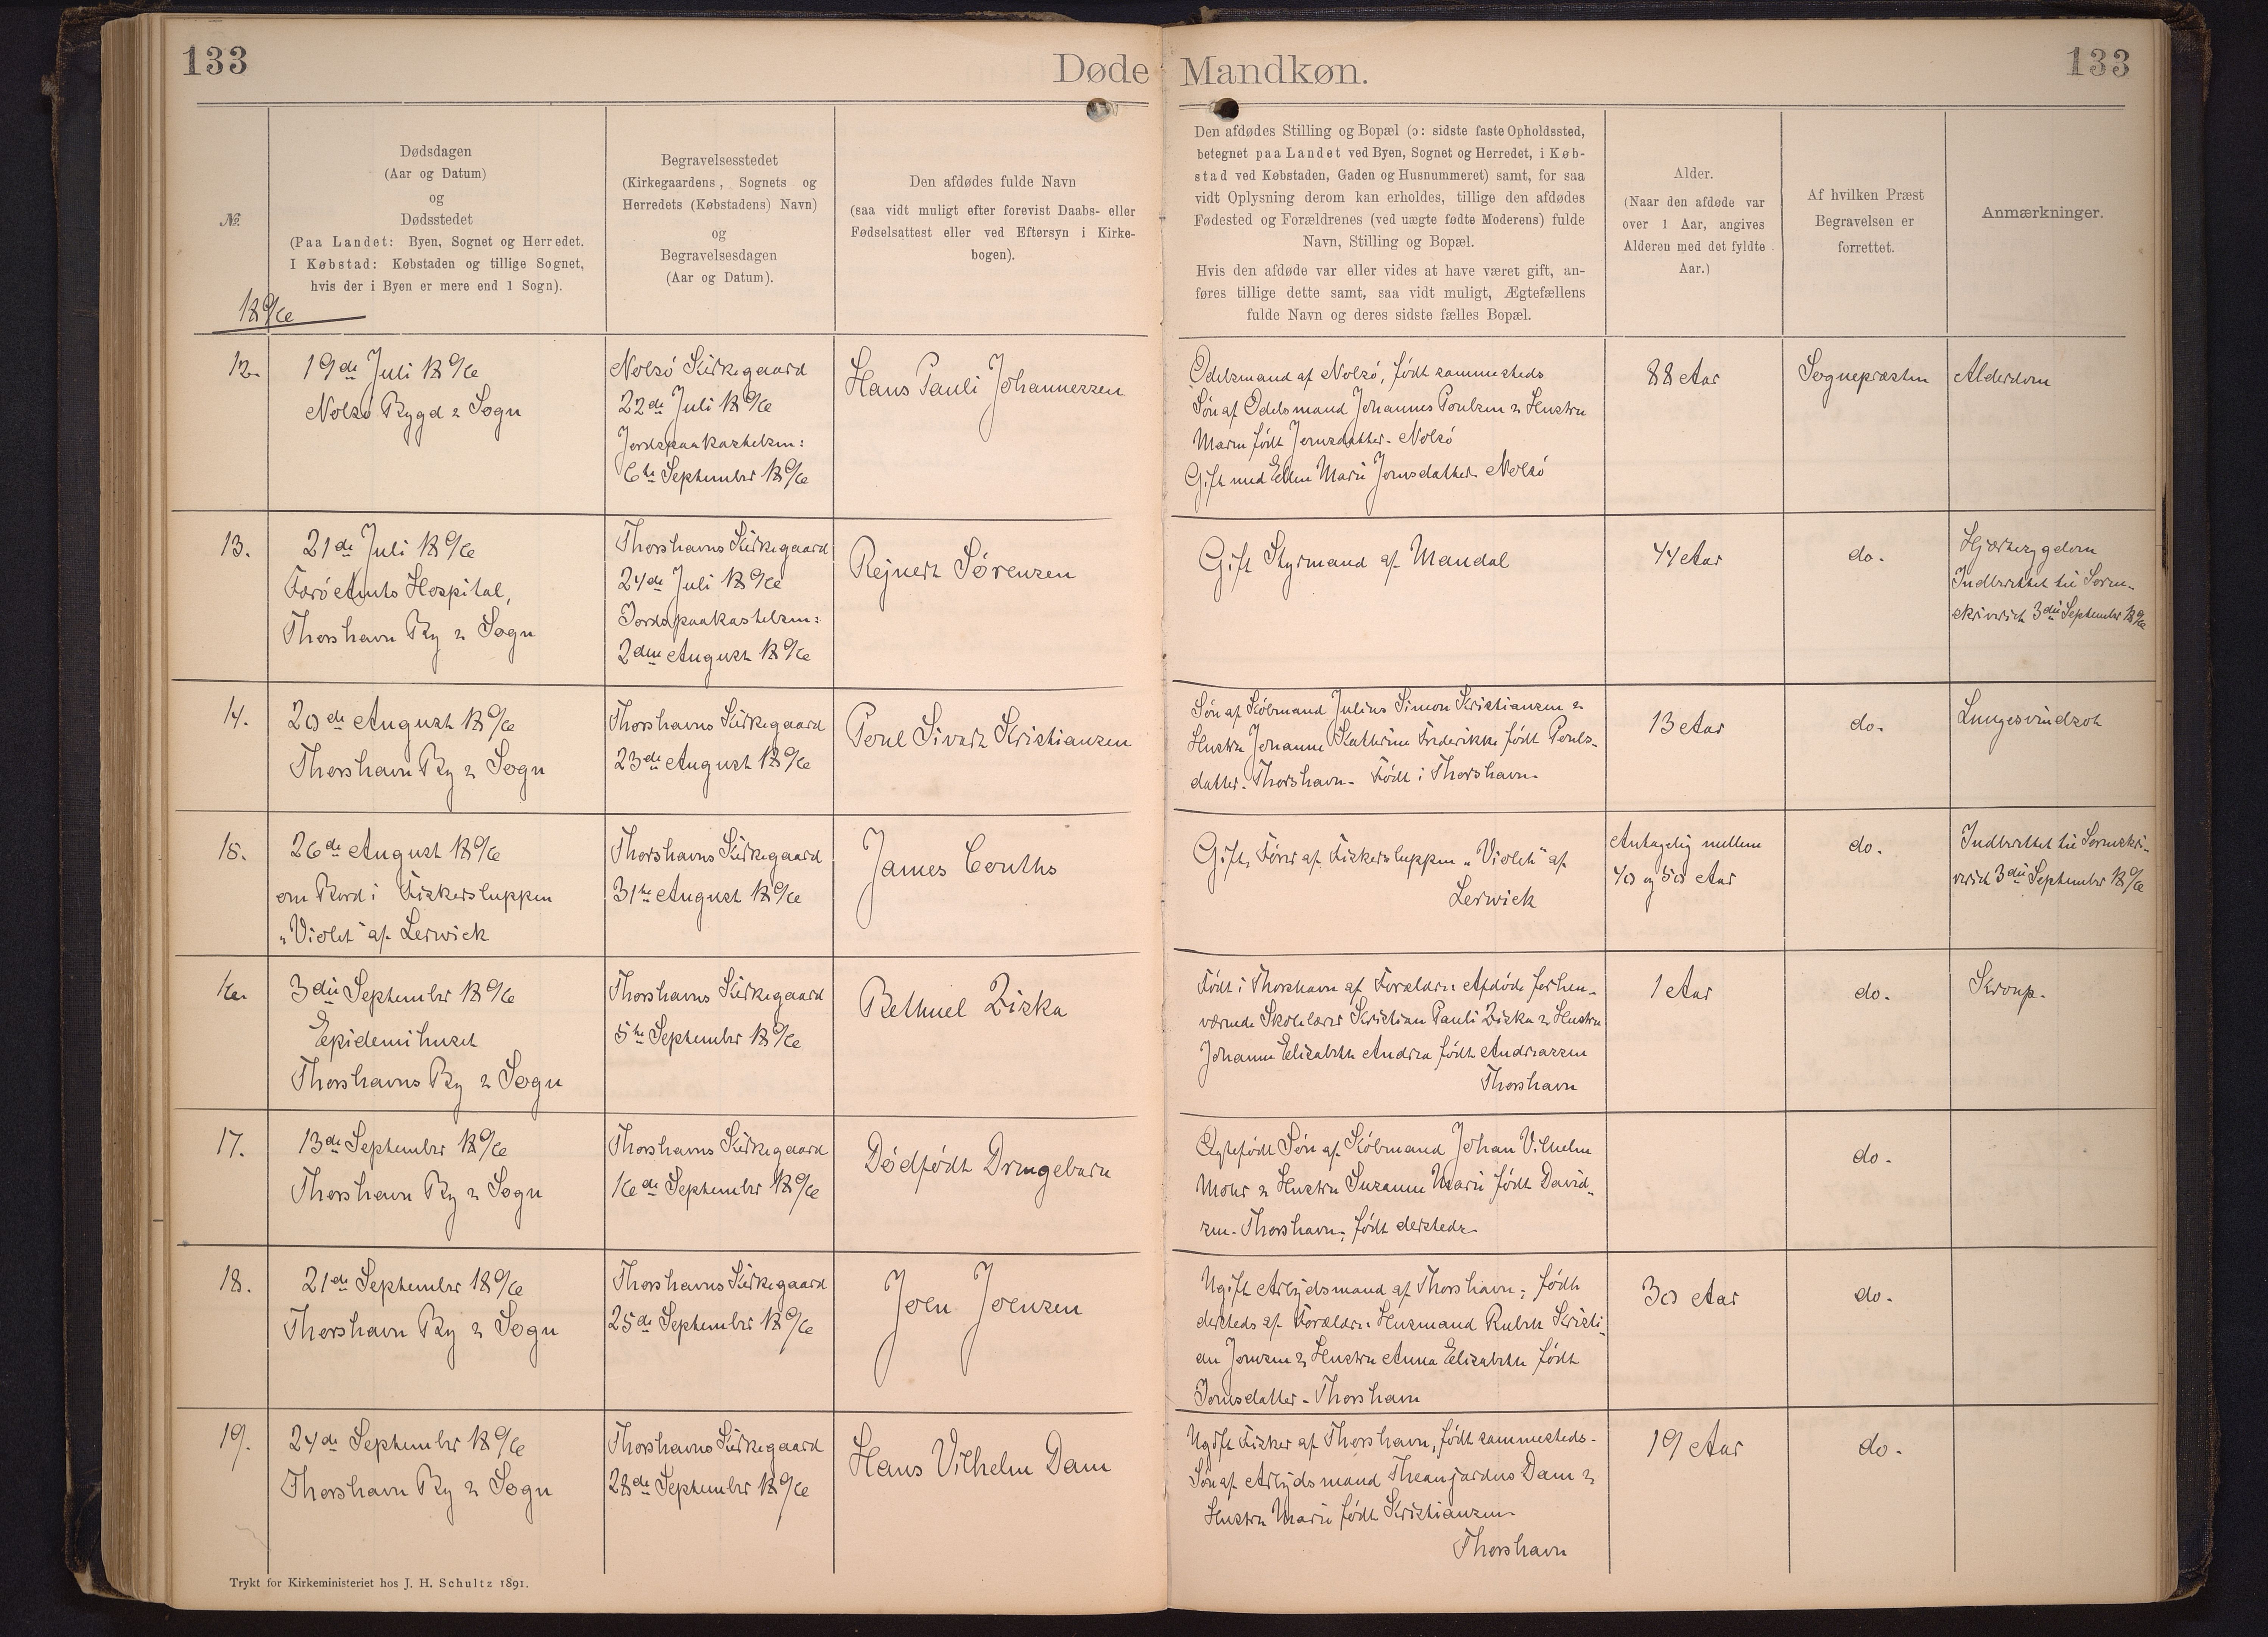 133
Døde Mandkøn.
133
№.
Dødsdagen
(Aar og Datum)
og
Dødsstedet
(Paa Landet: Byen, Sognet og Herredet.
I Købstad: Købstaden og tillige Sognet,
hvis der i Byen er mere end 1 Sogn).
Begravelsesstedet
(Kirkegaardens, Sognets og
Herredets (Købstadens) Navn)
og
Begravelsesdagen
(Aar og Datum).
Den afdødes fulde Navn
(saa vidt muligt efter forevist Daabs- eller
Fødselsattest eller ved Eftersyn i Kirke-
bogen).
Den afdødes Stilling og Bopæl (ɔ: sidste faste Opholdssted,
betegnet paa Landet ved Byen, Sognet og Herredet, i Køb-
stad ved Købstaden, Gaden og Husnummeret) samt, for saa
vidt Oplysning derom kan erholdes, tillige den afdødes
Fødested og Forældrenes (ved uægte fødte Moderens) fulde
Navn, Stilling og Bopæl.
Hvis den afdøde var eller vides at have været gift, an-
føres tillige dette samt, saa vidt muligt, Ægtefællens
fulde Navn og deres sidste fælles Bopæl.
Alder.
(Naar den afdøde var
over 1 Aar, angives
Alderen med det fyldte
Aar.)
Af hvilken Præst
Begravelsen er
forrettet.
Anmærkninger.
1896
12.
19de Juli 1896
Nolsø Bygd & Sogn
Nolsø Kirkegaard
22de Juli 1896
Jordspaakastelsen:
6te September 1896
Hans Pauli Johannessen
Odelsmand af Nolsø, født sammesteds
Søn af Odelsmand Johannes Poulsen & Hustru
Maren født Joensdatter. Nolsø
Gift med Ellen Marie Joensdatter. Nolsø
88 Aar
Sognepræsten
Alderdom
13.
21de Juli 1896
Færø Amts Hospital,
Thorshavn By & Sogn
Thorshavns Kirkegaard
24de Juli 1896
Jordspaakastelsen:
2den August 1896
Rejnert Sørensen
Gift Styrmand af Mandal
44 Aar
do.
Hjertesygdom
Indberettet til Soren-
skriveriet 3die September 1896
14.
20de August 1896
Thorshavn By & Sogn
Thorshavns Kirkegaard
23de August 1896
Poul Sivert Kristiansen
Søn af Købmand Julius Simon Kristiansen &
Hustru Johanne Kathrine Frederikke født Pouls-
datter. Thorshavn. Født i Thorshavn.
13 Aar
do.
Lungesvindsot
15.
26de August 1896
om Bord i Fiskersluppen
"Violet" af Lerwick
Thorshavns Kirkegaard
31te August 1896
James Couths
Gift, Fører af Fiskersluppen "Violet" af
Lerwick
Antagelig mellem
40 og 50 Aar
do.
Indberettet til Sorenskri-
veriet 3die September 1896
16.
3die September 1896
Epidemihuset
Thorshavns By & Sogn
Thorshavns Kirkegaard
5te September 1896
Bethuel Ziska
Født i Thorshavn af Forældre: Afdøde forhen-
værende Skolelærer Kristian Pauli Ziska & Hustru
Johanne Elisabeth Andrea født Andreassen
Thorshavn
1 Aar
do.
Kroup.
17.
13de September 1896
Thorshavn By & Sogn
Thorshavns Kirkegaard
16de September 1896
Dødfødt Drengebarn
Ægtefødt Søn af Købmand Johan Vilhelm
Mohr & Hustru Susanne Marie født David-
sen. Thorshavn, født dersteds.
do.
18.
21de September 1896
Thorshavn By & Sogn
Thorshavns Kirkegaard
25de September 1896
Joen Joensen
Ugift Arbejdsmand af Thorshavn; født
dersteds af Forældre: Husmand Rubek Kristi-
an Joensen & Hustru Anna Elisabeth født
Joensdatter - Thorshavn
30 Aar
do.
19.
24de September 1896
Thorshavn By & Sogn
Thorshavns Kirkegaard
28de September 1896
Hans Vilhelm Dam
Ugift Fisker af Thorshavn, født sammesteds.
Søn af Arbejdsmand Dam &
Hustru Marie født Kristiansen.
Thorshavn
19 Aar
do.
Trykt for Kirkeministeriet hos J. H. Schultz 1891.